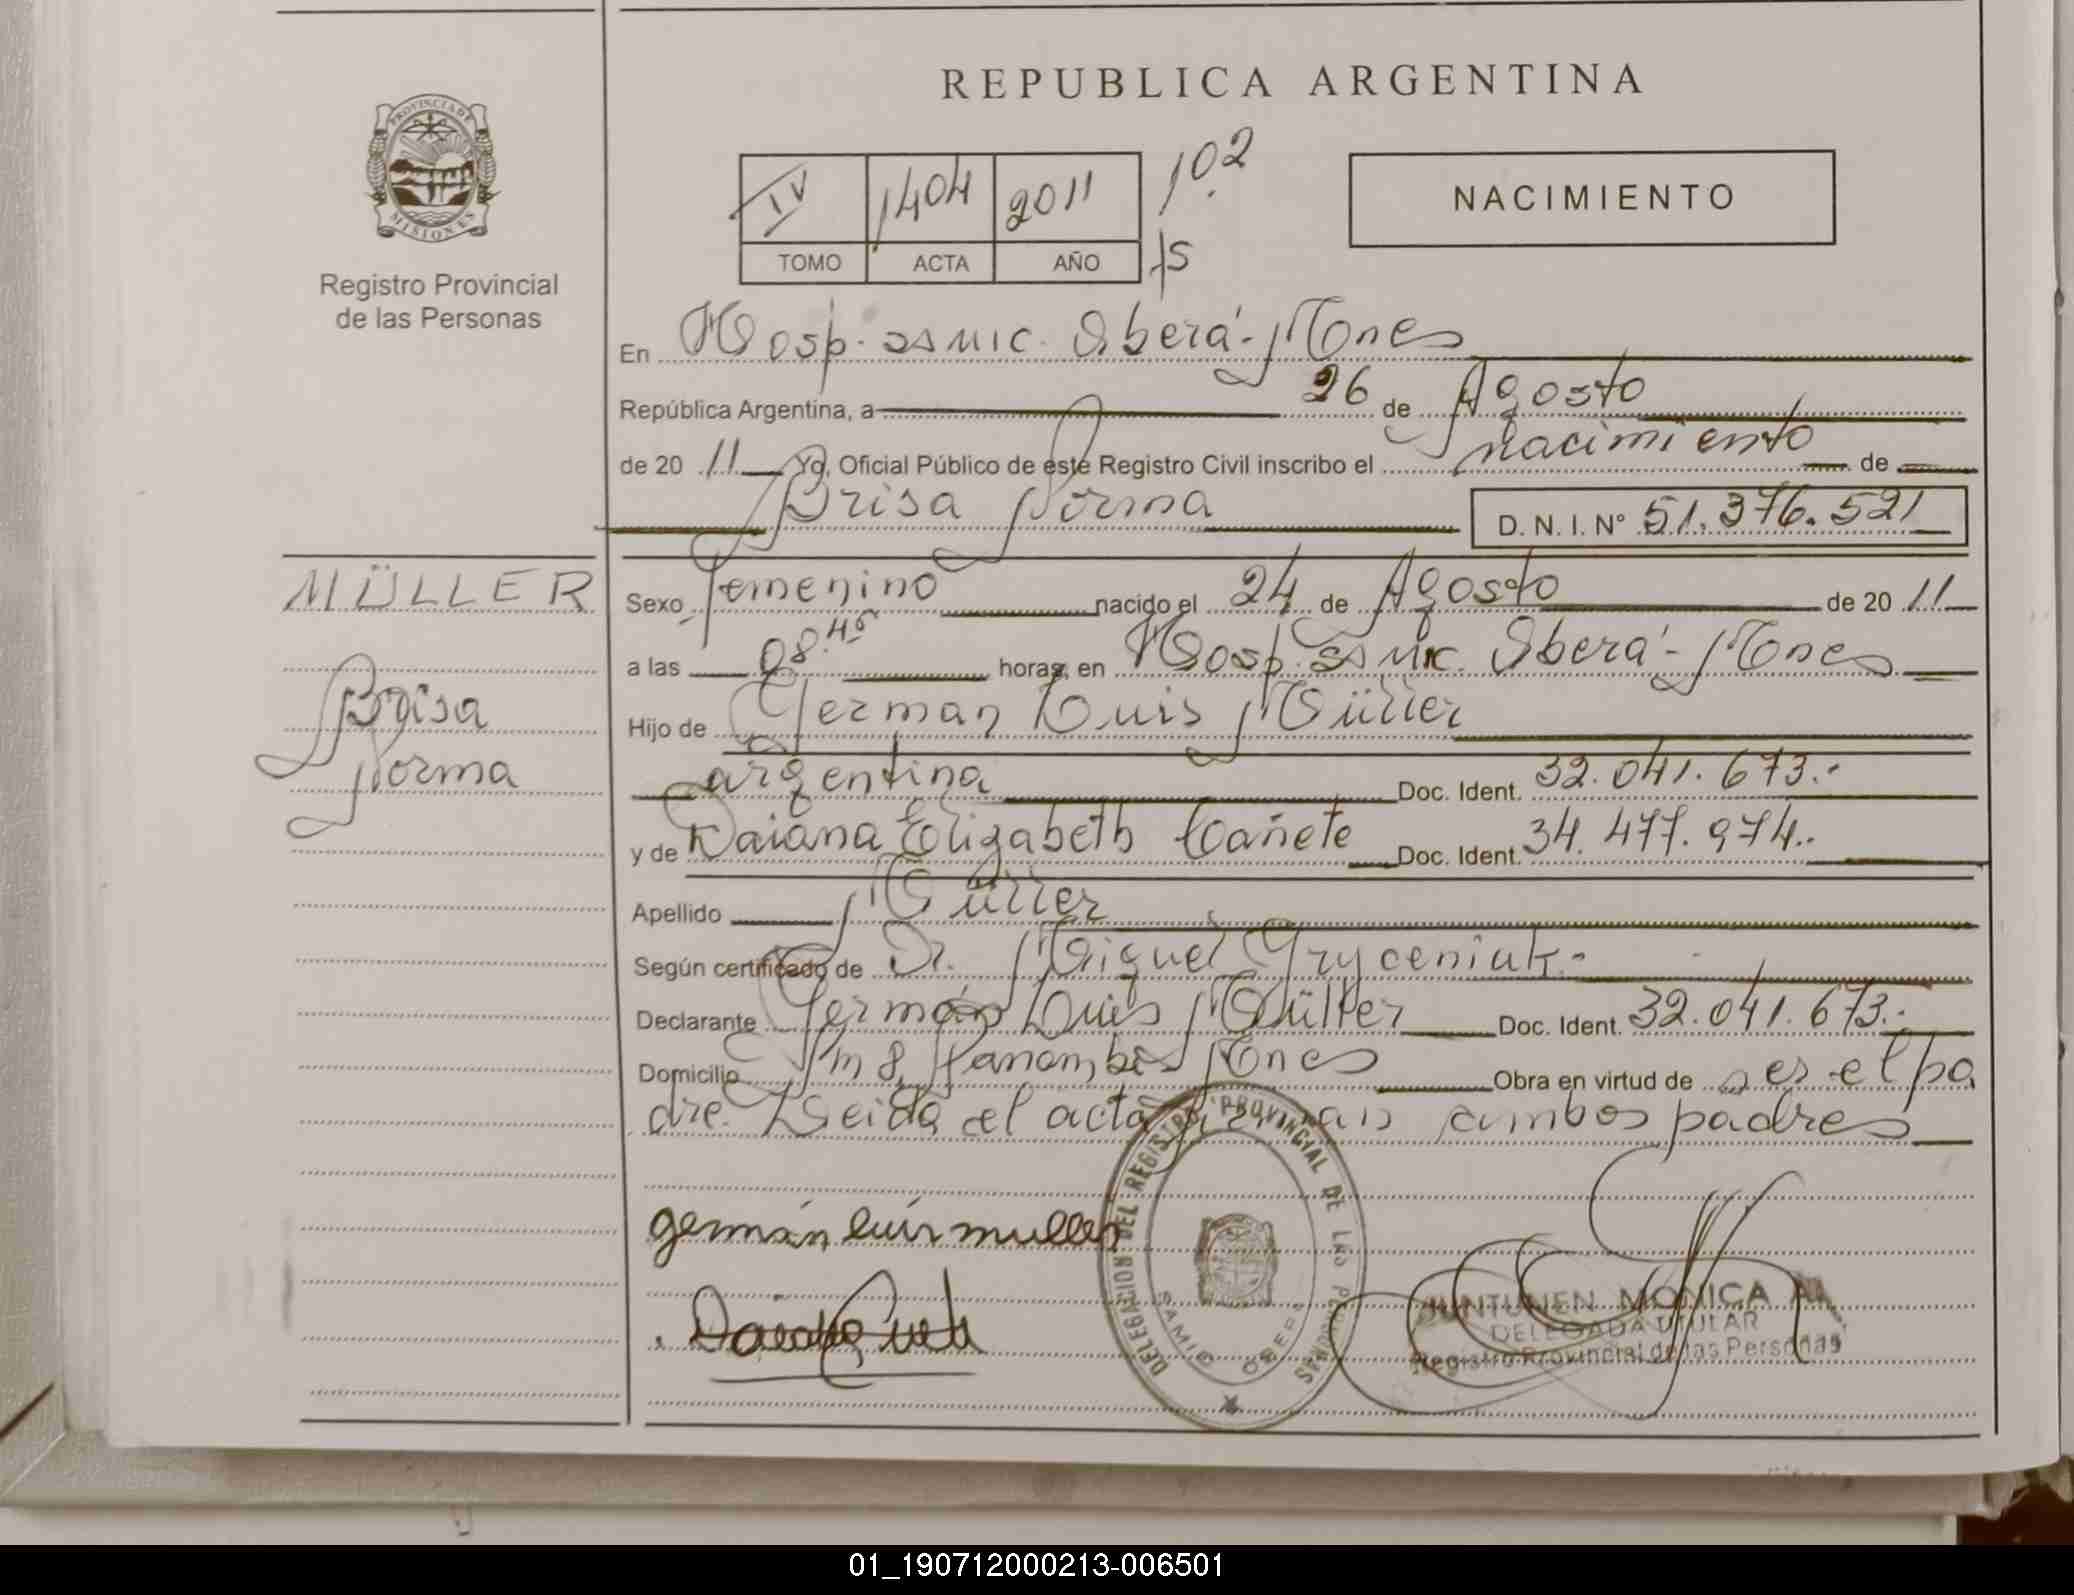 REPUBLICA ARGENTINA
PROVINCIA DE
MISIONES
Registro Provincial
de las Personas
IV 1404 2011 102
TOMO ACTA AÑO fs
NACIMIENTO
En Hosp. SAMIC. Oberá - Mnes
República Argentina, a 26 de Agosto
de 20 11 Yo, Oficial Público de este Registro Civil inscribo el nacimiento de
Brisa Norma D. N. I. Nº 51.376.521
MÜLLER
Brisa
Norma
Sexo femenino nacido el 24 de Agosto de 20 11
a las 08.45 horas, en Hosp. SAMIC. Oberá - Mnes
Hijo de German Luis Müller
argentina Doc. Ident. 32.041.673.-
y de Daiana Elizabeth Cañete Doc. Ident. 34.477.974.-
Apellido Müller
Según certificado de Dr. Miguel Gryceniuk.-
Declarante Germán Luis Müller Doc. Ident. 32.041.673.-
Domicilio Km 8, Panambí Mnes Obra en virtud de ser el pa
dre. Leida el acta firman ambos padres
germán luis muller
DELEGACION DEL REGISTRO PROVINCIAL DE LAS PERSONAS
SAMIC OBERA
JUNTUNEN MONICA
DELEGADA TITULAR
Registro Provincial de las Personas
01_190712000213-006501